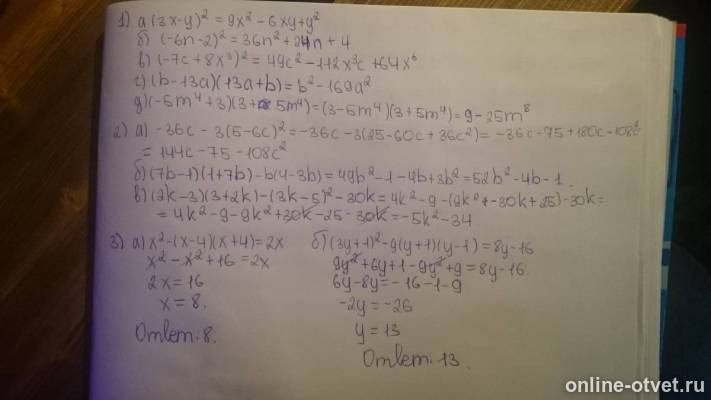 1) а (3x-y)² = 9x² - 6xy + y²
б) (-6n-2)² = 36n² + 24n + 4
в) (-7c + 8x³)² = 49c² - 112x³c + 64x⁶
г) (b-13a)(13a+b) = b² - 169a²
д) (-5m⁴+3)(3+5m⁴) = (3-5m⁴)(3+5m⁴) = 9-25m⁸
2) а) -36c - 3(5-6c)² = -36c - 3(25-60c+36c²) = -36c-75+180c-108c²
= 144c - 75 - 108c²
б) (7b-1)(1+7b) - b(4-3b) = 49b² - 1 - 4b + 3b² = 52b² - 4b - 1.
в) (2k-3)(3+2k) - (3k-5)² - 30k = 4k² - 9 - (9k² - 30k + 25) - 30k =
= 4k² - 9 - 9k² + 30k - 25 - 30k = -5k² - 34
3) а) x² - (x-4)(x+4) = 2x б) (3y+1)² - 9(y+1)(y-1) = 8y - 16
x² - x² + 16 = 2x 9y² + 6y + 1 - 9y² + 9 = 8y - 16.
2x = 16 6y - 8y = -16 - 1 - 9
x = 8. -2y = -26
y = 13
Ответ: 8. Ответ: 13.
online-otvet.ru